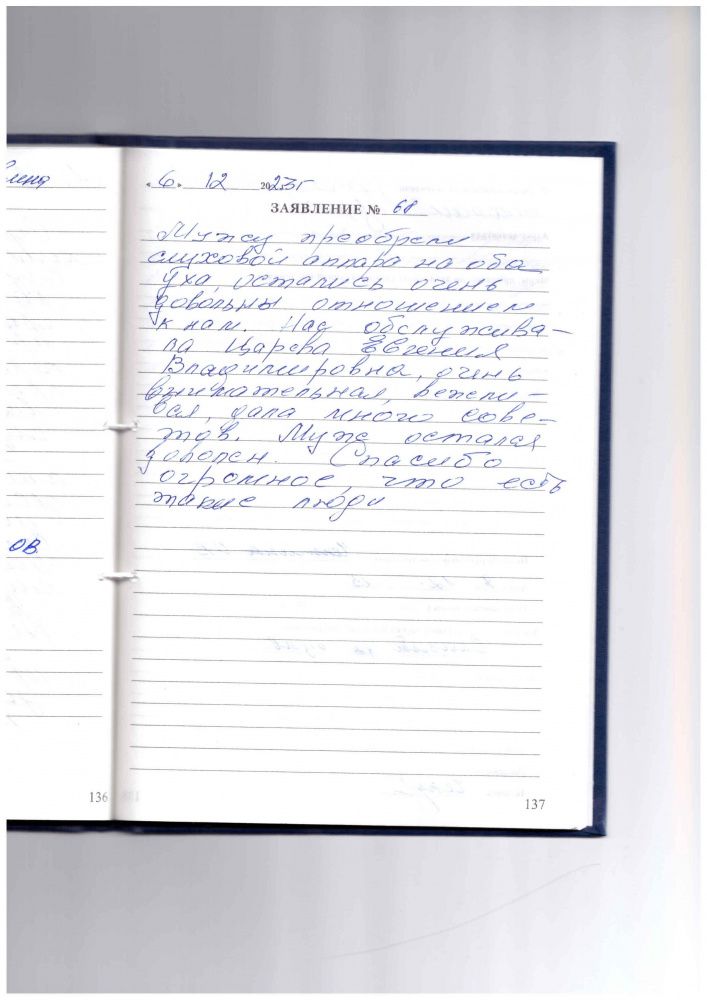 лина
ов.
136
« 6 » 12 2023г
ЗАЯВЛЕНИЕ № 68
Мужу преобрели
слуховой аппара на оба
уха, остались очень
довольны отношением
к нам. Нас обслужива-
ла Царева Евгения
Владимировна, очень
внимательная, вежли-
вая, дала много сове-
тов. Муж остался
доволен. Спасибо
огромное, что есть
такие люди
137